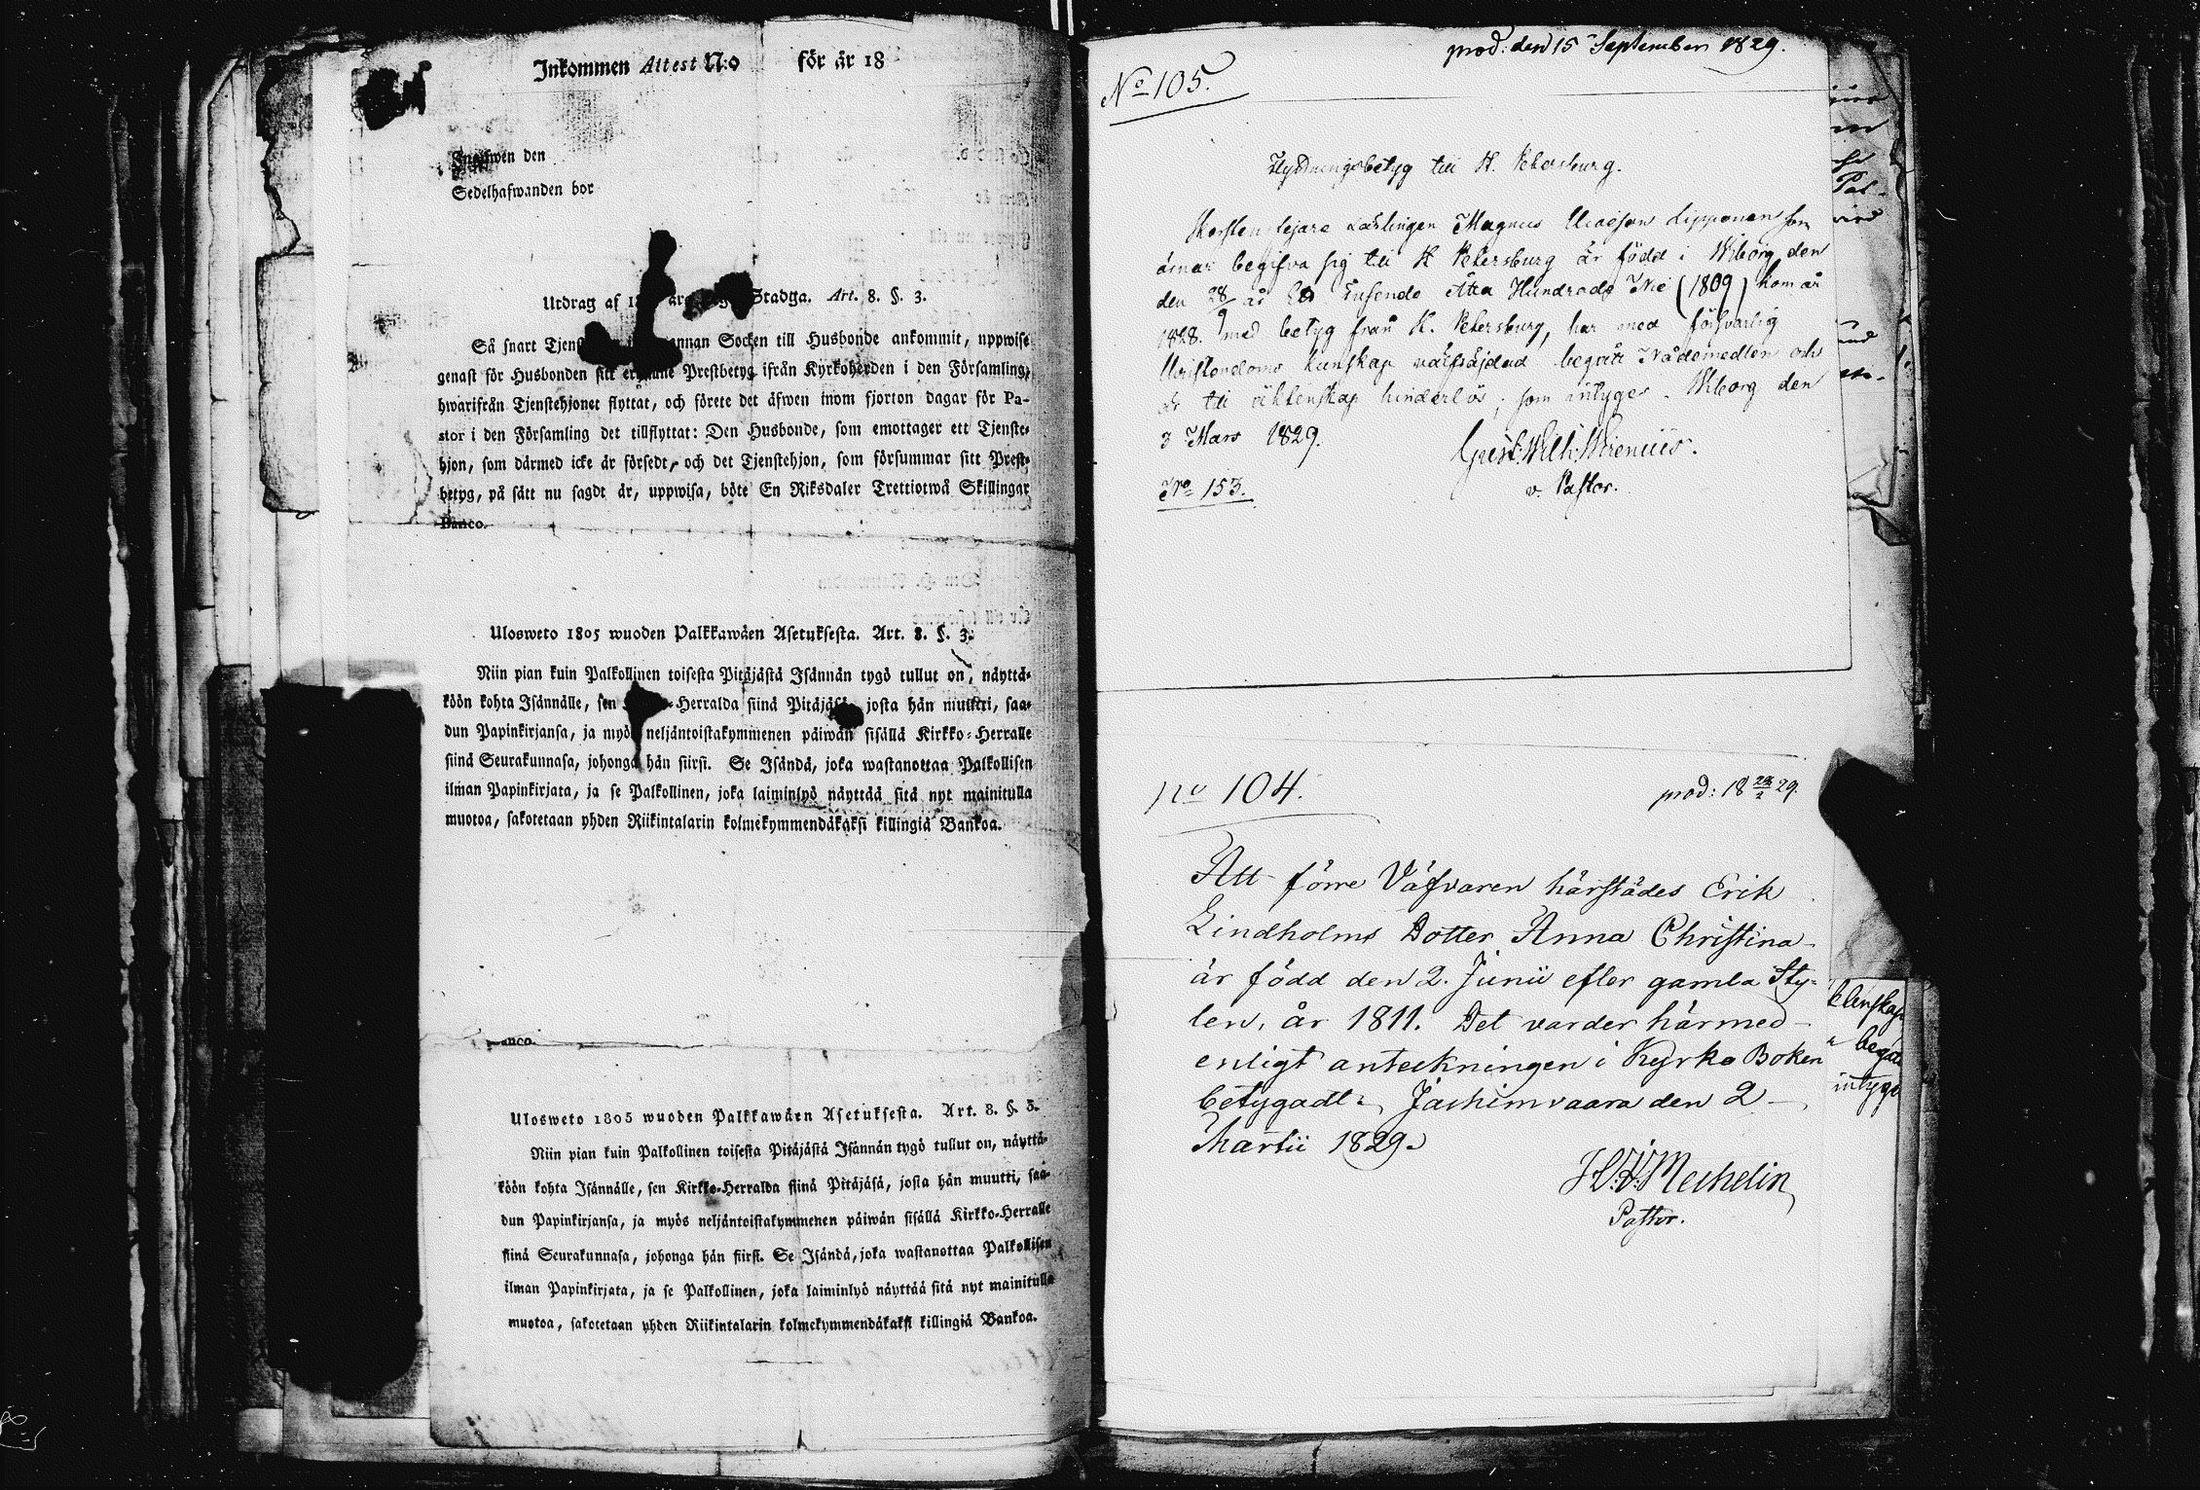 Inkommen Attest N:o för år 18
den
Sedelhafwanden bor
Utdrag af Stadga. Art. 8. §. 3.
Så snart annan Socken till Husbonde ankommit, uppwise
genast för Husbonden sitt Prestbetyg ifrån Kyrkoherden i den Församling,
hwarifrån Tjenstehjonet flyttat, och förete det äfwen inom fjorton dagar för Pa-
stor i den Församling det tillflyttat: Den Husbonde, som emottager ett Tjenste-
hjon, som därmed icke är försedt, och det Tjenstehjon, som försummar sitt Prest-
betyg, på sätt nu sagdt är, uppwisa, böte En Riksdaler Trettiotwå Skillingar
Banco.
Ulosweto 1805 wuoden Palkkawäen Asetuksesta. Art. 8. §. 3.
Niin pian kuin Palkollinen toisesta Pitäjästä Isännän tygö tullut on, näyttä-
köön kohta Isännälle, sen -Herralda siinä josta hän muutti, saa-
dun Papinkirjansa, ja neljäntoistakymmenen päiwän sisällä Kirkko-Herralle
siinä Seurakunnasa, johonga hän siirsi. Se Isändä, joka wastanottaa Palkollisen
ilman Papinkirjata, ja se Palkollinen, joka laiminlyö näyttää sitä nyt mainitulla
muotoa, sakotetaan yhden Riikintalarin kolmekymmendäkaksi killingiä Bankoa.
anco.
Ulosweto 1805 wuoden Palkkawäen Asetuksesta. Art. 8. §. 3.
Niin pian kuin Palkollinen toisesta Pitäjästä Isännän tygö tullut on, näyttä-
köön kohta Isännälle, sen Kirkko-Herralda siinä Pitäjäsä, josta hän muutti, saa-
dun Papinkirjansa, ja myös neljäntoistakymmenen päiwän sisällä Kirkko-Herralle
siinä Seurakunnasa, johonga hän siirsi. Se Isändä, joka wastanottaa Palkollisen
ilman Papinkirjata, ja se Palkollinen, joka laiminlyö näyttää sitä nyt mainitulla
muotoa, sakotetaan yhden Riikintalarin kolmekymmendäkaksi killingiä Bankoa.
prod: den 15 September 1829.
No 105.
Flyttningsbetyg till St. Petersburg.
Lärlingen Magnus Lipponen som
ämnar begifva sig till St Petersburg är född i Wiborg den
den 28/9 år Ett Tusende Åtta Hundrade Nie (1809) kom år
1828. med betyg från St. Petersburg, har med försvarlig
Christendoms kunskap begått Nådemedlen och
är till äktenskap hinderlös; som intygas. Wiborg den
3 Mars 1829.
Gust: Wilh:
v. Pastor.
No 153.
no 104.
prod: 18 29.
Att förre Väfvaren härstädes Erik
Lindholms Dotter Anna Christina
är född den 2. Junii efter gamla Sty-
len, år 1811. Det varder härmed
enligt anteckningen i Kyrko Boken
betygadt. Jaakimvaara den 2
Martii 1829.
Mechelin
Pastor.
begått
intyga